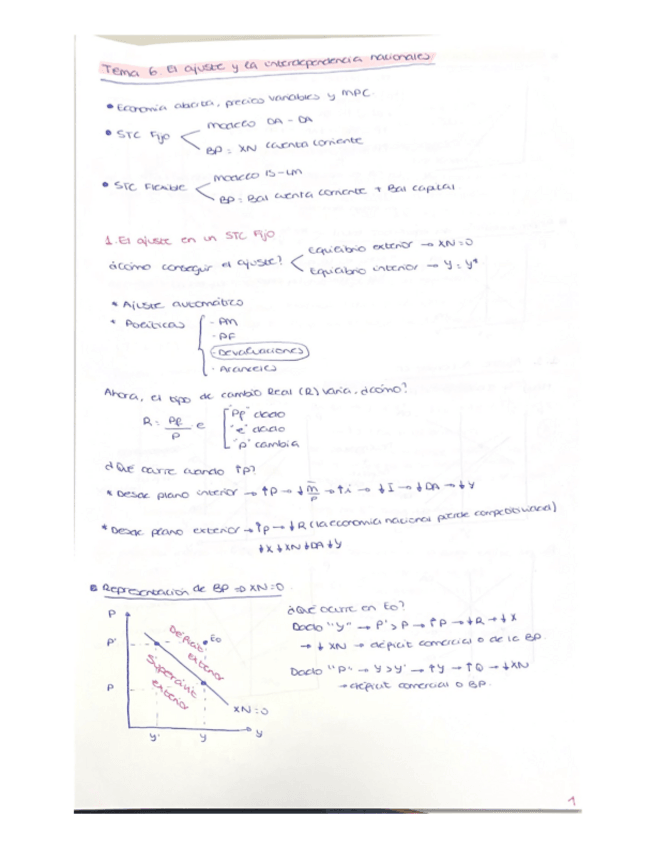 Tema 6. El ajuste y la interdependencia nacionales.
• Economía abierta, precios variables y MPC.
• STC Fijo
modelo OA - DA
BP = XN cuenta corriente
• STC Flexible
modelo IS-LM
BP = Bal cuenta corriente + Bal capital
1. El ajuste en un STC Fijo
¿Cómo conseguir el ajuste?
Equilibrio exterior → XN=0
Equilibrio interior → Y=Y*
* Ajuste automático
* Políticas
- PM
- PF
- Devaluaciones
- Aranceles
Ahora, el tipo de cambio Real (R) varía. ¿cómo?
R = Pf/P · e
"Pf" dado
"e" dado
"P" cambia
¿Qué ocurre cuando ↑p?
* Desde plano interior → ↑P → ↓ m̄/p → ↑i → ↓I → ↓DA → ↓Y
* Desde plano exterior → ↑p → ↓R (la economía nacional pierde competitividad)
↓X ↓XN ↓DA ↓Y
Representación de BP ⇒ XN=0.
¿Qué ocurre en Eo?
Dado "Y" → P' > P → ↑P → ↓R → ↓X
→ ↓ XN → déficit comercial o de la BP.
Dado "P" → Y > Y' → ↑Y → ↑Q → ↓XN
→ déficit comercial o BP.
P
P'
P
Déficit exterior
Superávit exterior
Eo
XN=0
Y'
Y
Y
1